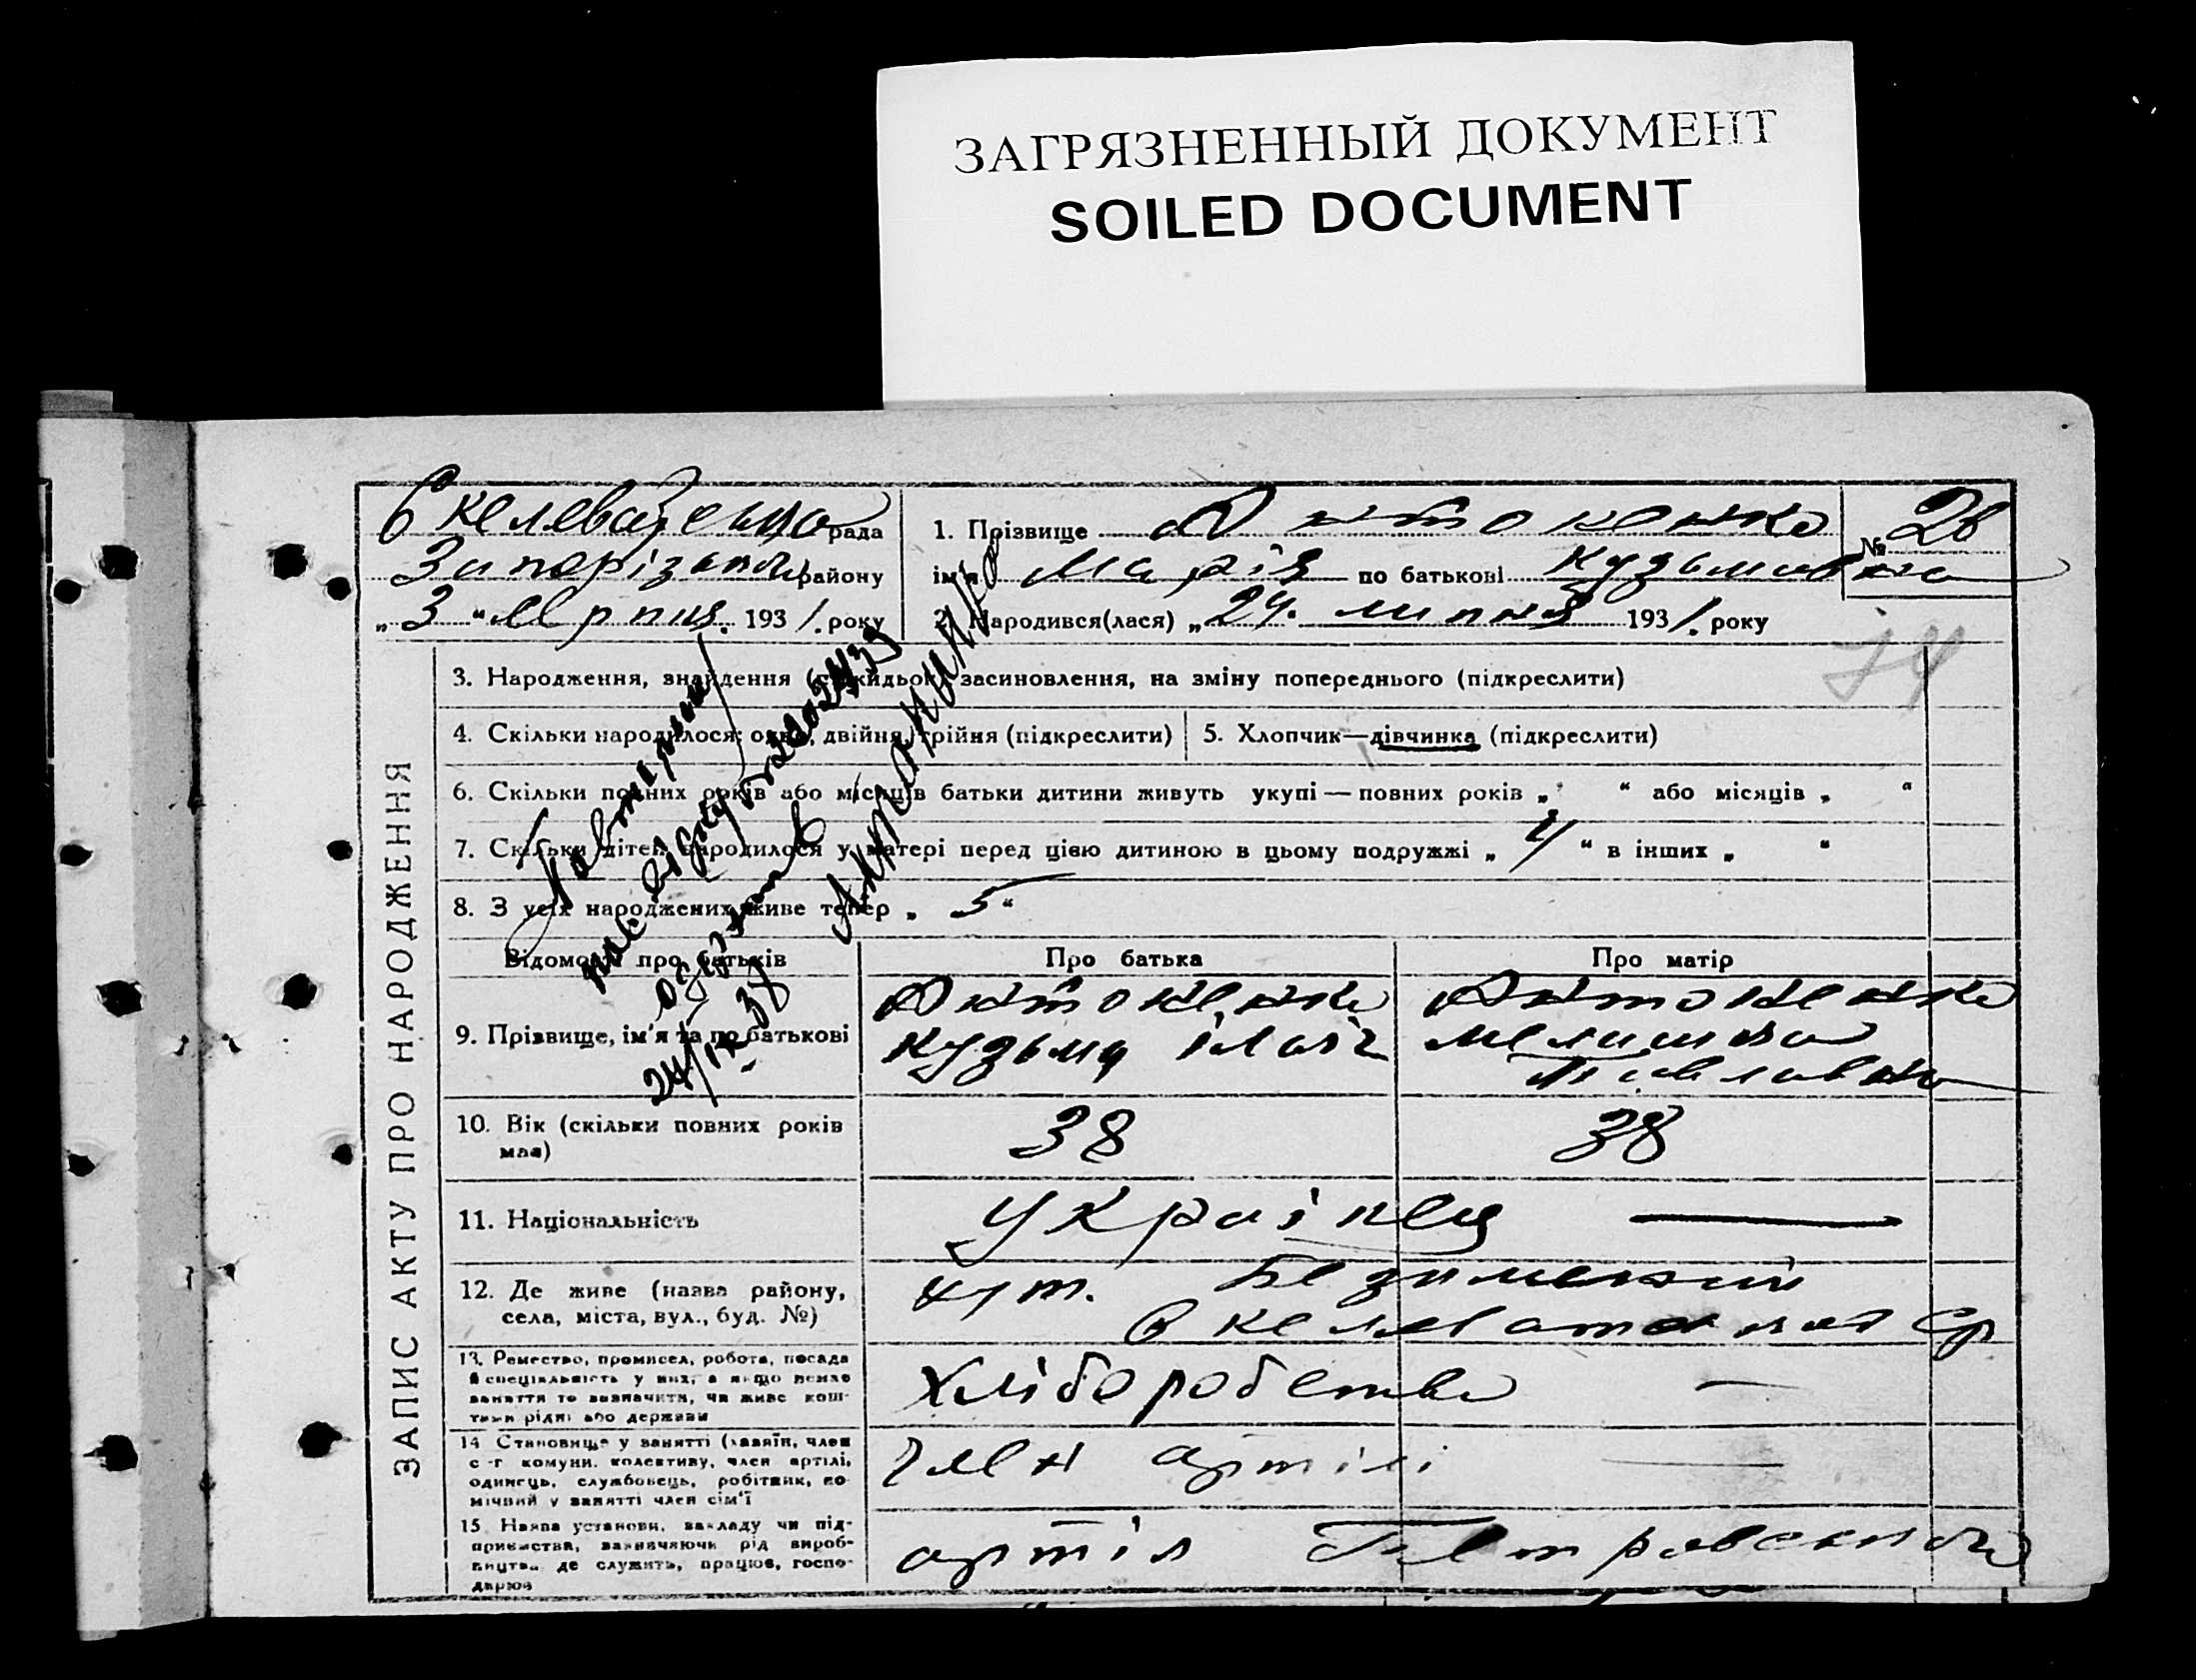 ЗАГРЯЗНЕННЫЙ ДОКУМЕНТ
SOILED DOCUMENT
рада
району
„ 3 “ серпня 193 1. року
1. Прізвище Антоненко
ім'я Марія по батькові Кузьмовна
№ 26
2. Народився(лася) „ 24. липня 193 1. року
74
ЗАПИС АКТУ ПРО НАРОДЖЕННЯ
3. Народження, знайдення (підкидьок), засиновлення, на зміну попереднього (підкреслити)
4. Скільки народилося: одна, двійня, трійня (підкреслити)
5. Хлопчик—дівчинка (підкреслити)
6. Скільки повних років або місяців батьки дитини живуть укупі — повних років „ “ або місяців „ “
7. Скільки дітей народилося у матері перед цією дитиною в цьому подружжі „ 4 “ в інших „ “
8. З усіх народжених живе тепер „ 5 “
Повторне
24/IV 38
Відомості про батьків
Про батька
Про матір
9. Прізвище, ім'я та по батькові
Антоненко
Кузьма
Антоненко
Павловна
10. Вік (скільки повних років має)
38
38
11. Національність
Українец
12. Де живе (назва району,
села, міста, вул., буд. №)
хут.
13. Ремество, промисел, робота, посада
й спеціальність у них, а якщо немає
заняття то зазначити, чи живе кош-
тами рідні або держави
Хліборобство
14. Становище у занятті (хазяїн, член
с.-г комуни, колективу, член артілі,
одинець, службовець, робітник, по-
мічний у занятті член сім'ї
член артілі
15. Назва установи, закладу чи під-
приємства, зазначаючи рід вироб-
ництва де служить, працює, госпо-
дарює
артіл Петровського